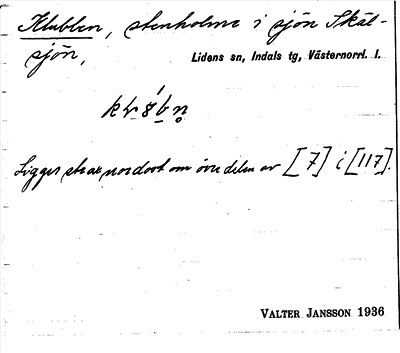 Klubben, stenholme i sjön Skäl-
sjön,
Lidens sn, Indals tg, Västernorrl. l.
Ligger strax nordost om övre delen av [7] i [117].
VALTER JANSSON 1936